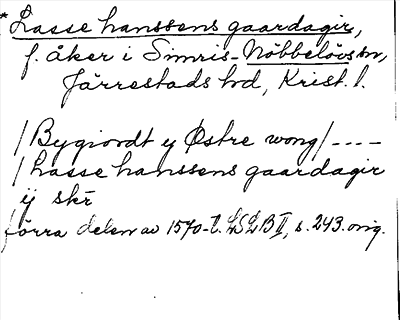 * Lasse hanssens gaardagir,
f. åker i Simris-Nöbbelövs sn,
Järrestads hd, Krist. l.
/Bygiordt y Østre wong/----
/Lasse hanssens gaardagir
ij skr
förra delen av 1570-t. LSLB II, s. 243. orig.